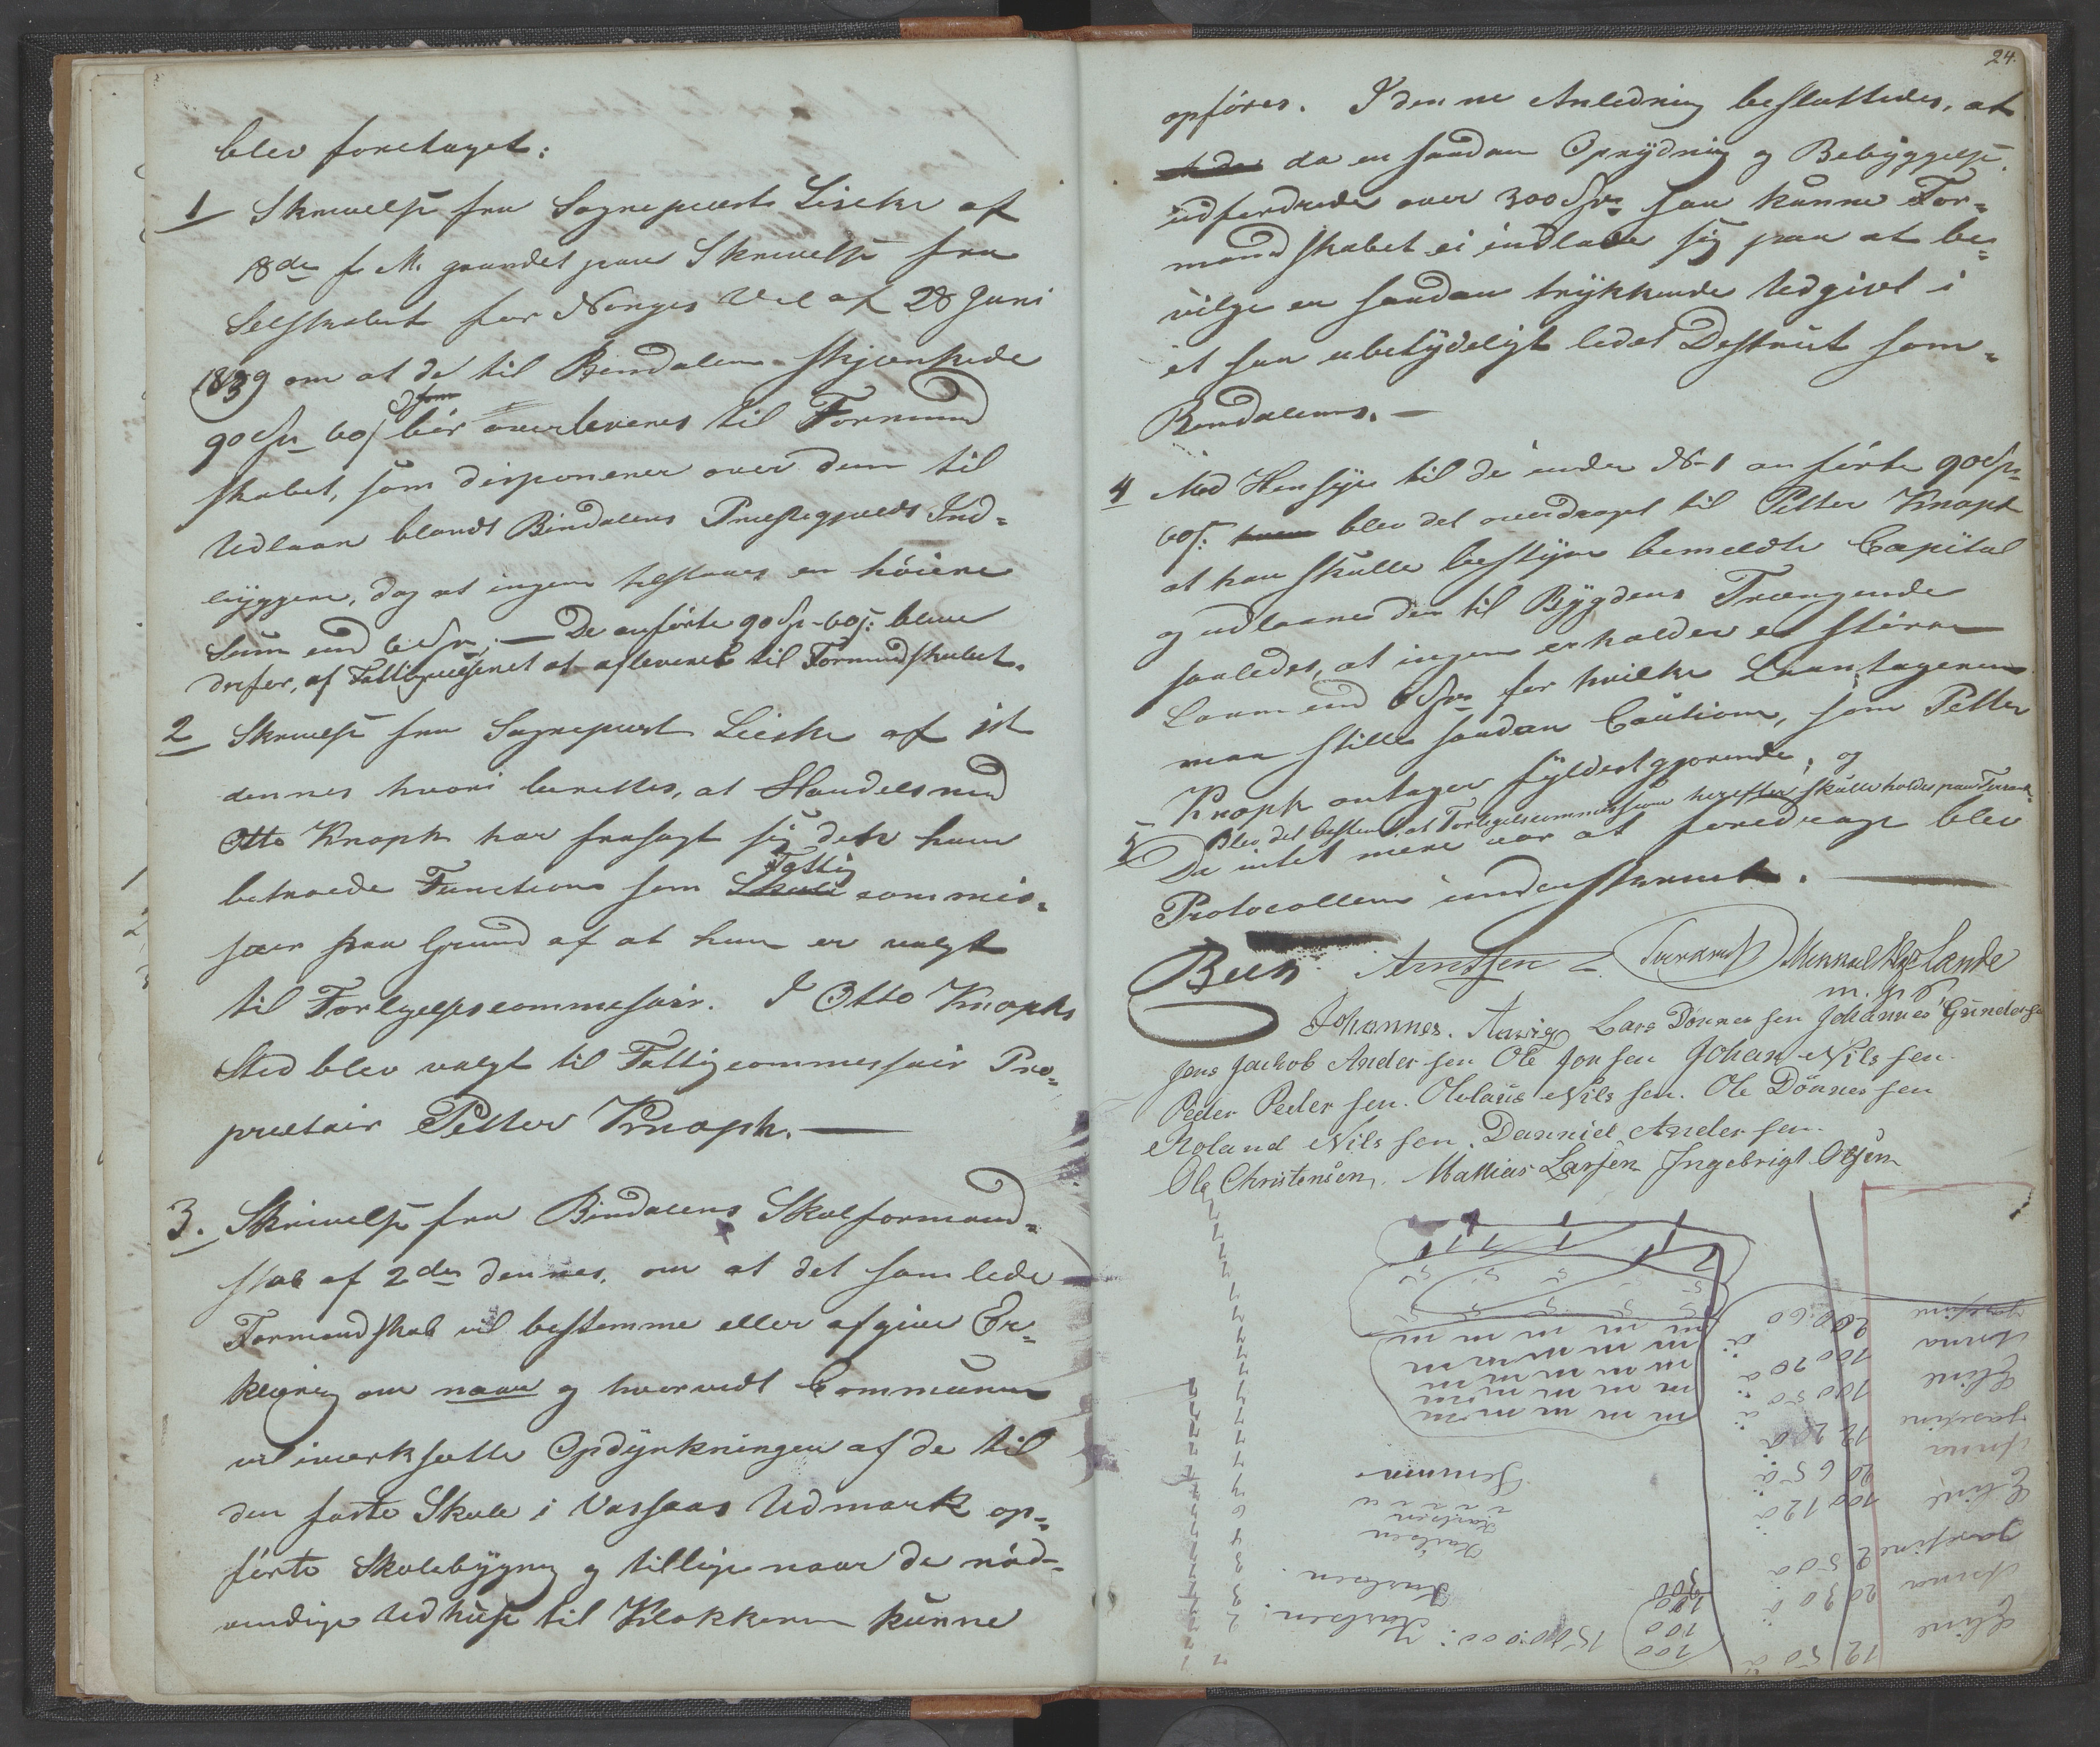 blev foretaget:
1 Skrivelse fra Sognepræst Liscke af
18de f. M. grundet paa Skrivelse fra
Selskabet for Norges Vel af 28 Juni
1839 om at de til Bindalen skjænkede
90 Spd 60 s bör overleveres til Formand
skabet, som disponerer over dem til
Udlaan blandt Bindalens Præstegjælds Ind=
byggere, dog at ingen tilstaaes en höiere
Sum end 6 Spd. — De anförte 90 Sp. 60 s: blive
derfor, af Fattigvæsenet at afleveres til Formandskabet.
2 Skrivelse fra Sognepræst Liscke af 1st
dennes hvori berettes, at Handelsmd
Otto Knoph har frasagt sig dett ham
betroede Function som Skole Fattig commis=
sær paa Grund af at han er valgt
til Forligelsescommissair. I Otto Knophs
Sted blev valgt til Fattigcommissair Pro=
prietair Petter Knoph. —
3. Skrivelse fra Bindalens Skoleformand=
skab af 2den dennes, om at det samlede
Formandskab vil bestemme eller afgive Er=
klæring om naar og hvorvidt Communen
vil iværksætte Opdyrkningen af de til
den faste Skole i Vassaas Udmark op=
förte Skolebygng og tillige naar de nöd=
vendige Udhuse til Klokkeren kunne
24.
opföres. I denne Anledning besluttedes, at
da en saadan Oprydning og Bebyggelse
udfordrede over 300 Spd saa kunne For=
mandskabet ei indlade sig paa at be=
vilge en saadan trykkende Udgivt i
et saa ubetydeligt ledet Destrict som
Bindalens. —
4 Med Hensyn til de under No 1 anförte 90 Sp
60 s: blev det overdraget til Petter Knoph
at han skulle bestyre bemeldte Capital
og udlaane den til Bygdens Trængende
saaledes, at ingen erholder et större
Laan end 6 Spd for hvilke Laantageren
maa stille saadan Caution, som Petter
Knoph antager fyldestgjorende, og
5 Blev det bestemt, at Forligelsescommissionen herefter skulle holdes paa Terraak.
Da intet mere var at foredrage blev
Protocollen underskrevet. —
Beck Arntsen Michael Helgelande
m. p. P.
Johannes Aarvig Lars Dønnesen Johannes Gundersen
Jens Jachob Andersen Ole Jonsen Johan Nilssen
Peder Pedersen. Olelaus Nilssen. Ole Dönnessen
Roland Nilssen. Danniel Andersen.
Ole Christensen. Mathias Larsen Ingebrigt Olsen
Josefine
Anna
Eline
Josefine
Anna
Eline
Josefine
Anna
Eline
Karlsen
Karlsen
Karlsen